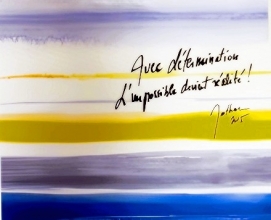 Avec détermination
L'impossible devient réalité !